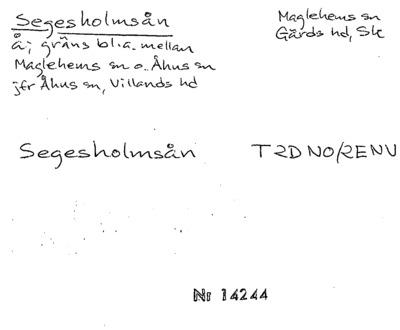 Segesholmsån
å; gräns bl.a. mellan
Maglehems sn o. Åhus sn
jfr Åhus sn, Villands hd
Maglehems sn
Gärds hd, Sk
Segesholmsån TRD NO/RENV
Nr 14244